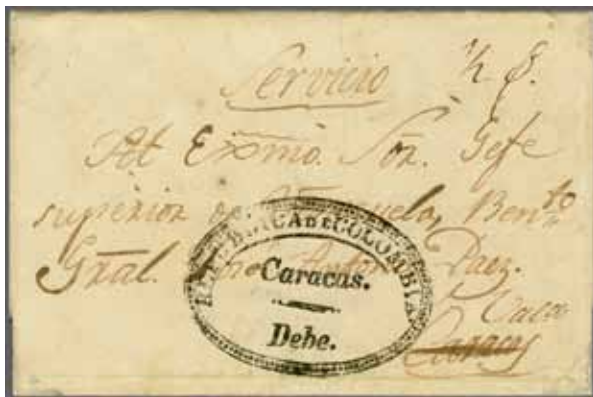 Servicio ½
Al Exmo. Sor. Gefe
superior de Venezuela, Bento
Gral. Jose Antonio Paez.
Caracas
REPUBLICA DE COLOMBIA
Caracas.
Debe.